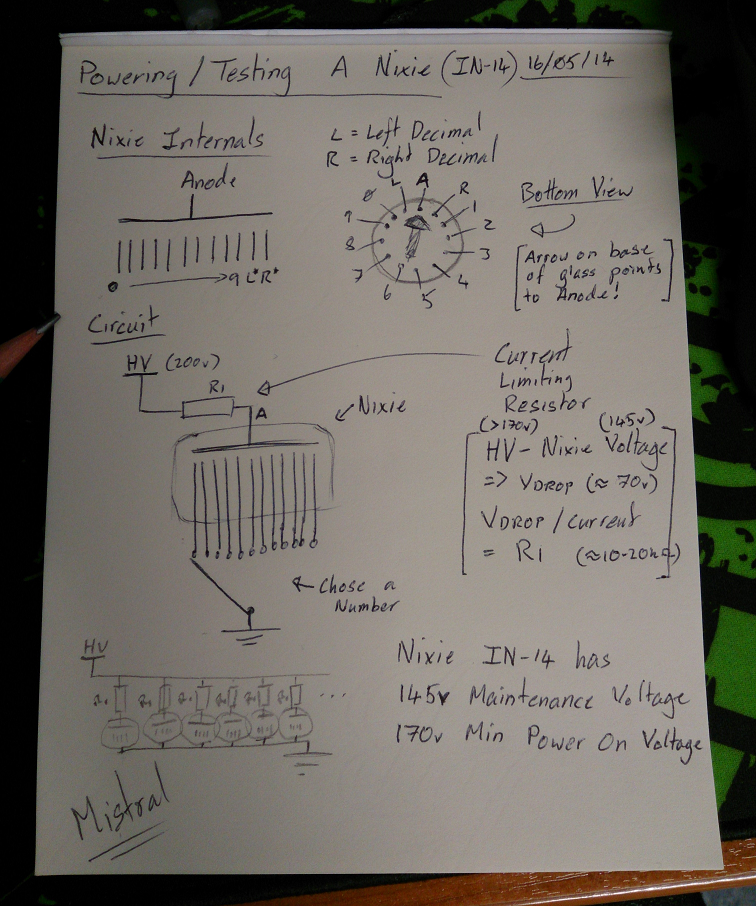 Powering / Testing A Nixie (IN-14) 16/05/14
Nixie Internals
L = Left Decimal
R = Right Decimal
Anode
0 → 9 L* R*
L A R
0 1
9 2
8 3
7 4
6 5
Bottom View
[Arrow on base
of glass points
to Anode!]
Circuit
HV (200v)
R1
A
← Nixie
Current
Limiting
Resistor
(>170v) (145v)
HV - Nixie Voltage
=> VDROP (≈ 70v)
VDROP / Current
= R1 (≈10-20kΩ)
← Chose a
Number
HV
...
Nixie IN-14 has
145v Maintenance Voltage
170v Min Power On Voltage
Mistral